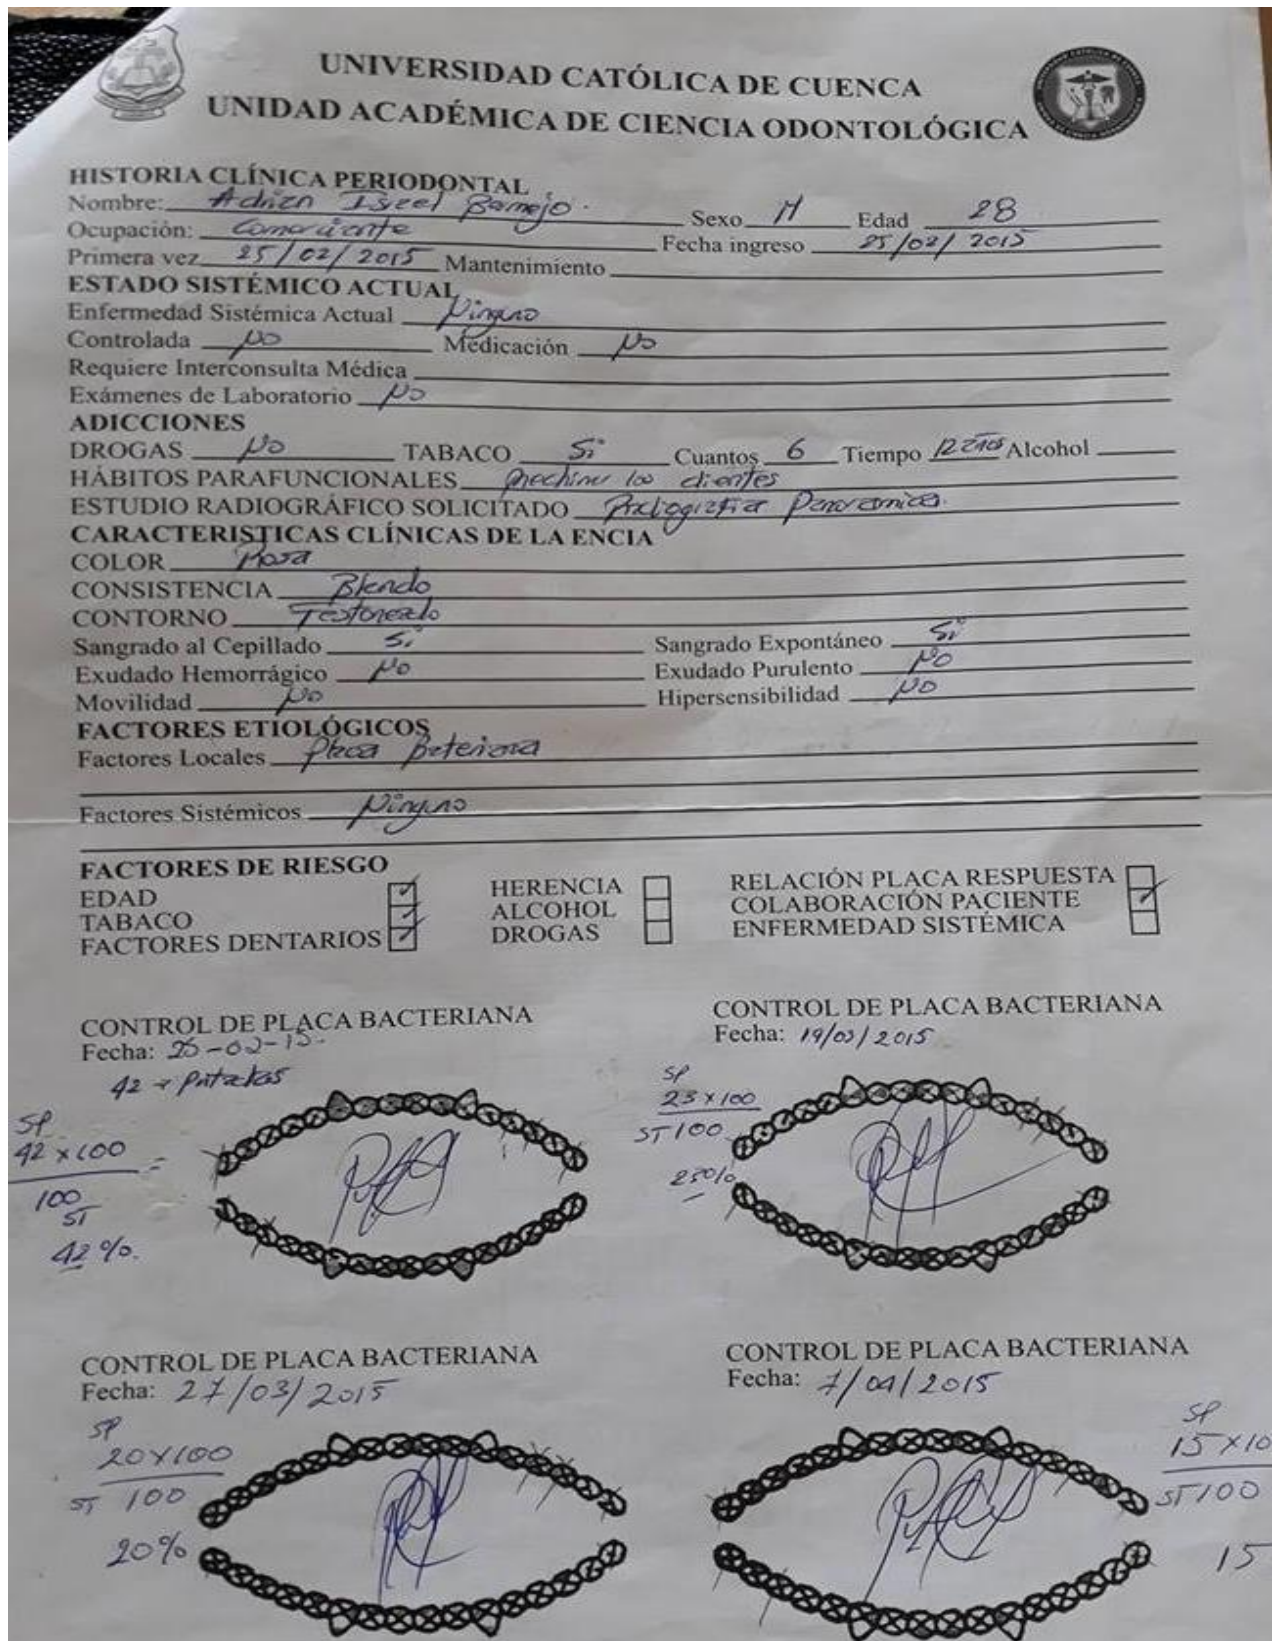 UNIVERSIDAD CATÓLICA DE CUENCA
UNIDAD ACADÉMICA DE CIENCIA ODONTOLÓGICA
HISTORIA CLÍNICA PERIODONTAL
Nombre: Adrian Isreel Bermejo. Sexo M Edad 28
Ocupación: Comerciante Fecha ingreso 25/02/2015
Primera vez 25/02/2015 Mantenimiento
ESTADO SISTÉMICO ACTUAL
Enfermedad Sistémica Actual Ninguno
Controlada No Medicación No
Requiere Interconsulta Médica
Exámenes de Laboratorio No
ADICCIONES
DROGAS No TABACO Si Cuantos 6 Tiempo 12 años Alcohol
HÁBITOS PARAFUNCIONALES los dientes
ESTUDIO RADIOGRÁFICO SOLICITADO Radiografia Panoramica.
CARACTERISTICAS CLÍNICAS DE LA ENCIA
COLOR Rosa
CONSISTENCIA Blando
CONTORNO Festoneado
Sangrado al Cepillado Si Sangrado Expontáneo Si
Exudado Hemorrágico No Exudado Purulento No
Movilidad No Hipersensibilidad No
FACTORES ETIOLÓGICOS
Factores Locales Placa Bateriana
Factores Sistémicos Ninguno
FACTORES DE RIESGO
EDAD HERENCIA RELACIÓN PLACA RESPUESTA
TABACO ALCOHOL COLABORACIÓN PACIENTE
FACTORES DENTARIOS DROGAS ENFERMEDAD SISTÉMICA
CONTROL DE PLACA BACTERIANA CONTROL DE PLACA BACTERIANA
Fecha: 25-02-15. Fecha: 19/03/2015
42
SP
42 x 100 =
100
ST
42 %.
SP
23 x 100
ST 100
23%
CONTROL DE PLACA BACTERIANA CONTROL DE PLACA BACTERIANA
Fecha: 27/03/2015 Fecha: 7/04/2015
SP
20 x 100
ST 100
20%
SP
15 x 10
ST 100
15